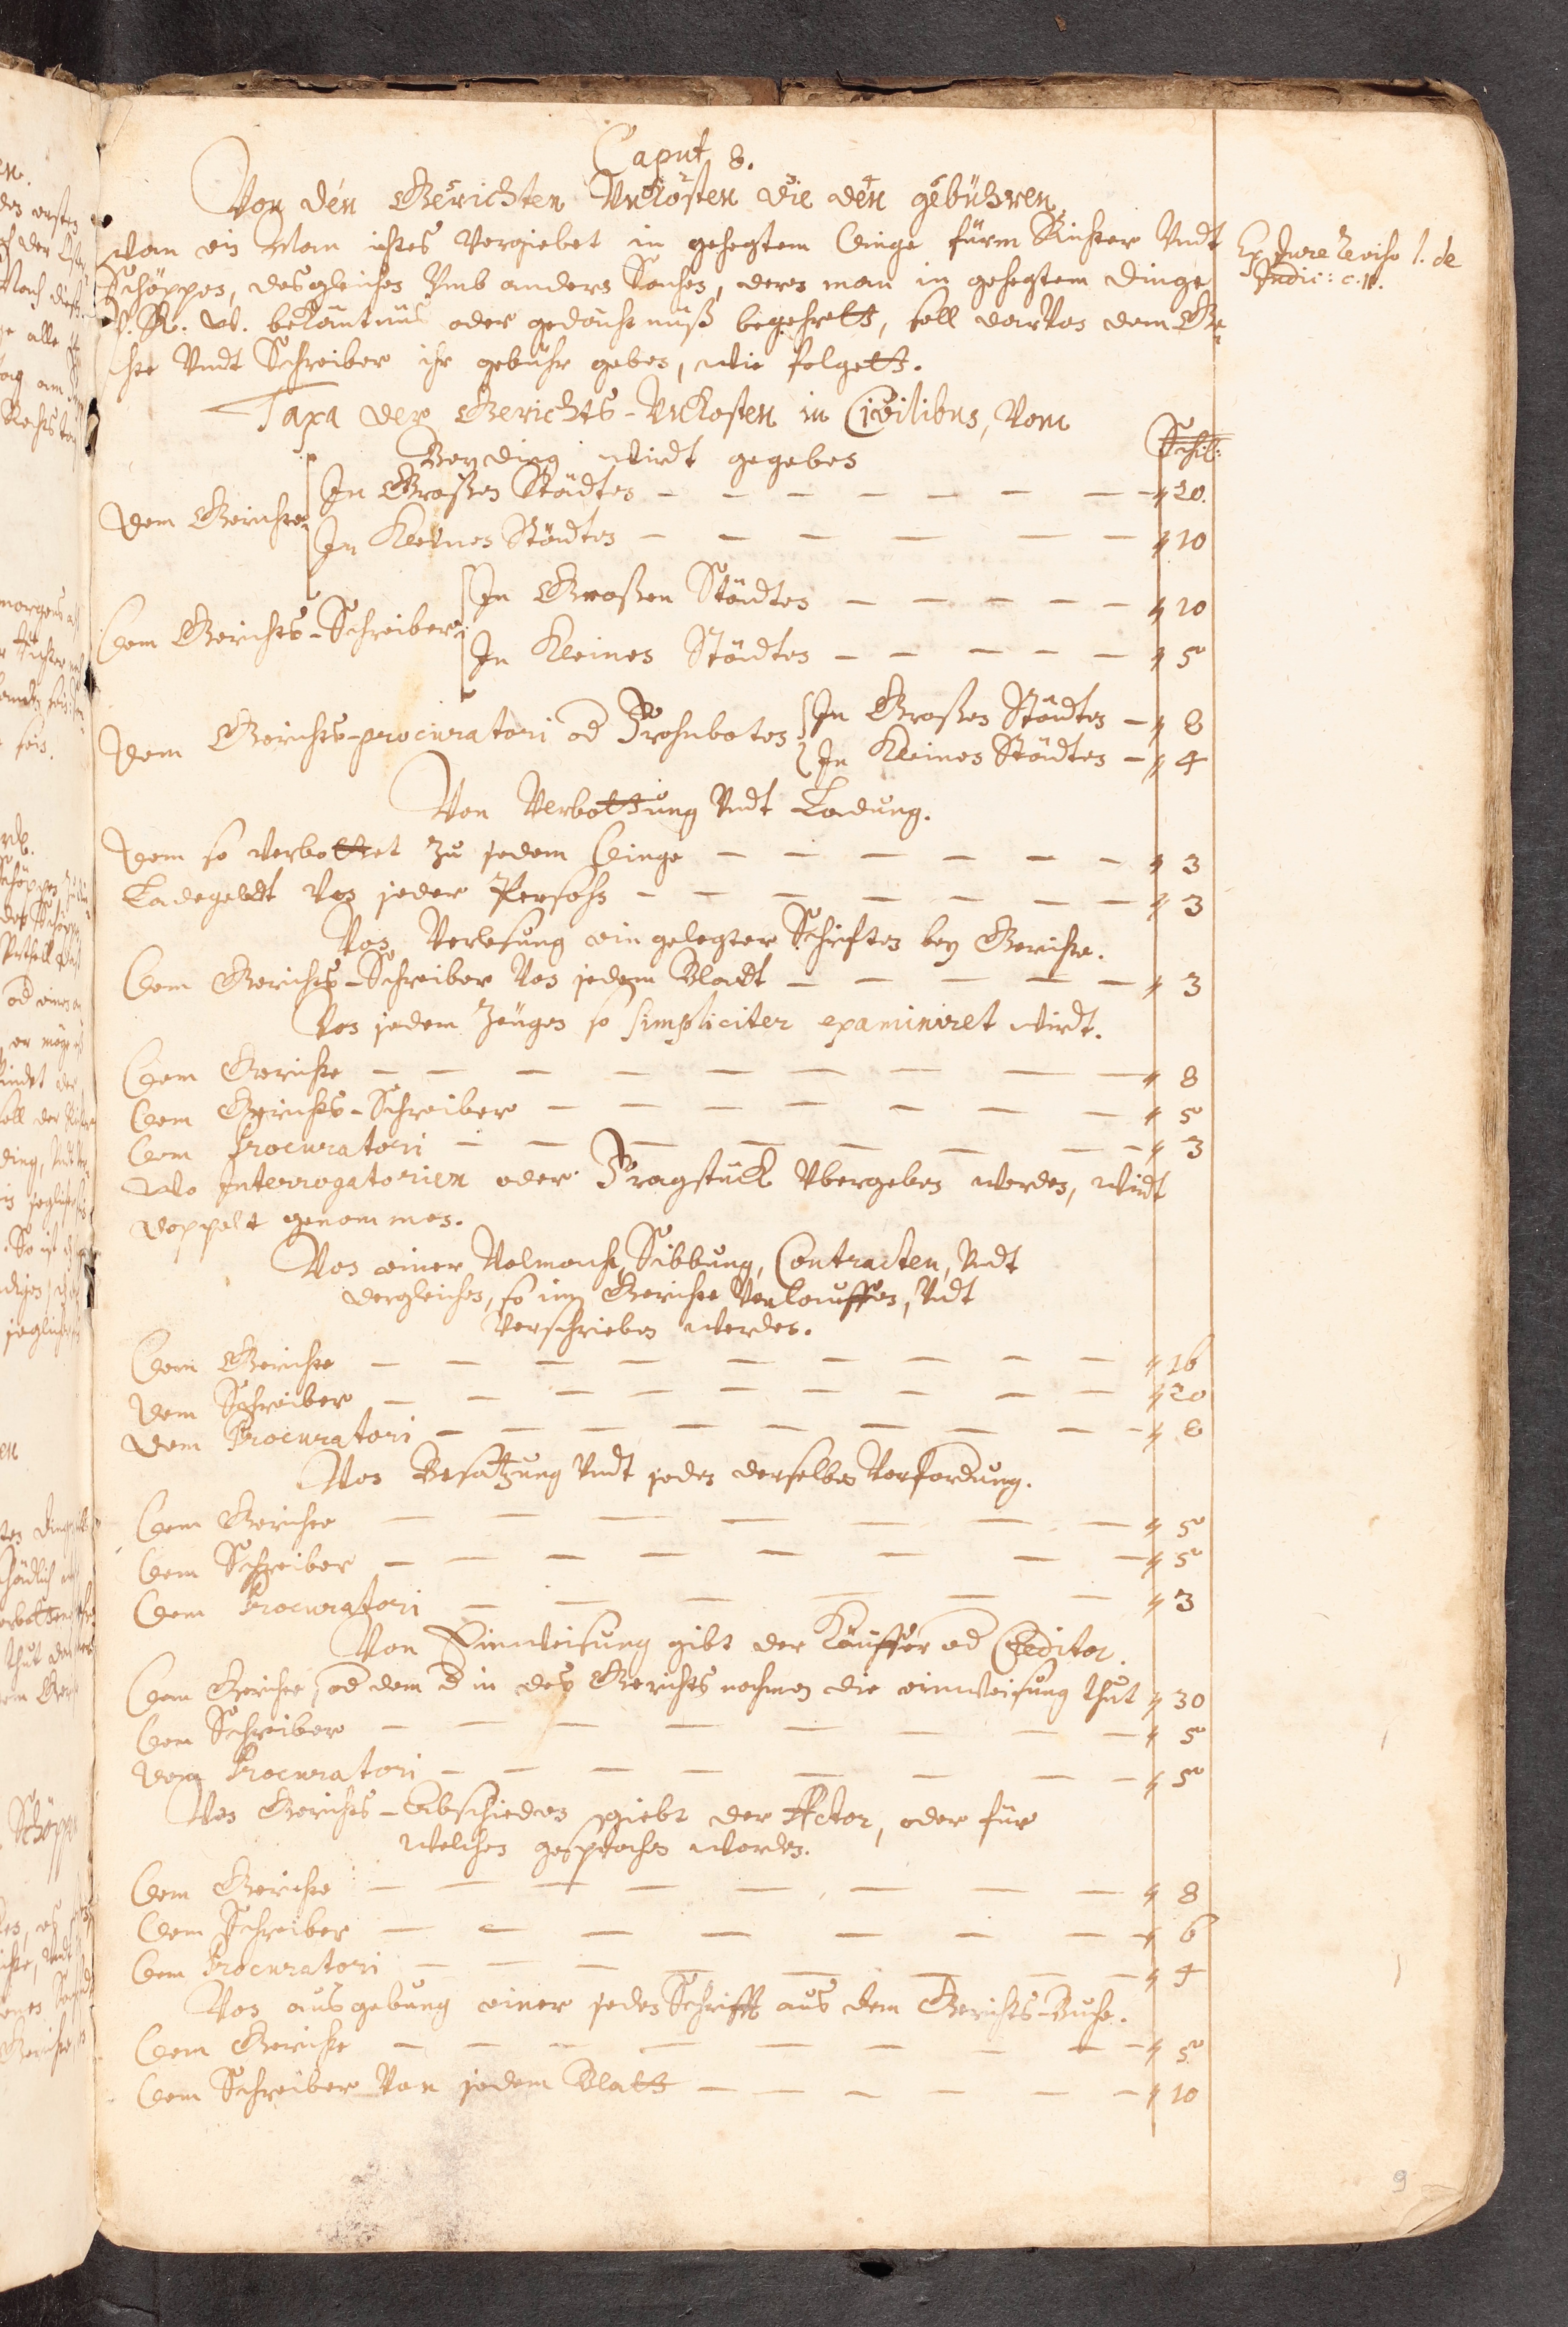 Caput 8.
Von den Gerichten Vnkosten die den gebühren
wan ein Man ichtes vergiebet in gehegtem Dinge fürm Richter Vndt
Schöppen, desgleichen Vmb andern Sachen, deren man in gehegtem Dinge
bekäntnüs oder gedächtnüß begehrett, soll darvon dem Ge¬
chte Vndt Schreiber ihr gebühr geben, wie folgett.
Ex Jure reviso l. de
Judic: c.
Taxa der Gerichts-Vnkosten in Civilibus, Vom
Beyding wirdt gegeben
Schil:
Dem Gerichte
In Großen Städten — — — — — — — " 20.
In Kleinen Städten — — — — — — " 10
Dem Gerichts-Schreiber
In Großen Städten — — — — — " 10
In Kleinen Städten — — — — — " 5
Dem Gerichts-procuratori od Frohnboten
In Großen Städten — " 8
In Kleinen Städten — " 4
Von Verbottung Vndt Ladung.
Dem so verbottet zu jedem Dinge — — — — — — " 3
Ladegeldt Von jeder Persohn — — — — — — — " 3
Von Verlesung ein gelegter Schriften bey Gerichte.
Dem Gerichts-Schreiber Von jedem Bladt — — — — — " 3
Von jedem Zeugen so simpliciter examiniret wirdt.
Dem Gerichte — — — — — — — — — " 8
Dem Gerichts-Schreiber — — — — — — — " 5
Dem Procuratori — — — — — — — — " 3
Wo Interrogatorien oder Fragstück Vbergeben werden, wirdt
doppelt genommen.
Von einer Volmacht, Sibbung, Contracten, Vndt
dergleichen, so im Gerichte Verlauffen, Vndt
Verschrieben werden.
Dem Gerichte — — — — — — — — — " 16
Dem Schreiber — — — — — — — — — " 20
Dem Procuratori — — — — — — — — — " 8
Von Besatzung Vndt jeder derselben Verfordung.
Dem Gerichte — — — — — — — — " 5
Dem Schreiber — — — — — — — — " 5
Dem Procuratori — — — — — — — " 3
Von Einweisung gibt der Käuffer od Creditor.
Dem Gerichte, od dem d in des Gerichts nahmen die einweisung thut " 30
Dem Schreiber — — — — — — — — " 5
Dem Procuratori — — — — — — — — " 5
Von Gerichts-Abschieden giebt der Actor, oder für
welchen gesprochen worden.
Dem Gerichte — — — — — — — — — " 8
Dem Schreiber — — — — — — — — " 6
Dem Procuratori — — — — — — — — " 4
Von ausgebung einer jeden Schrifft aus dem Gerichts-Buche.
Dem Gerichte — — — — — — — — — " 5
Dem Schreiber Von jedem Blatt — — — — — — " 10
9